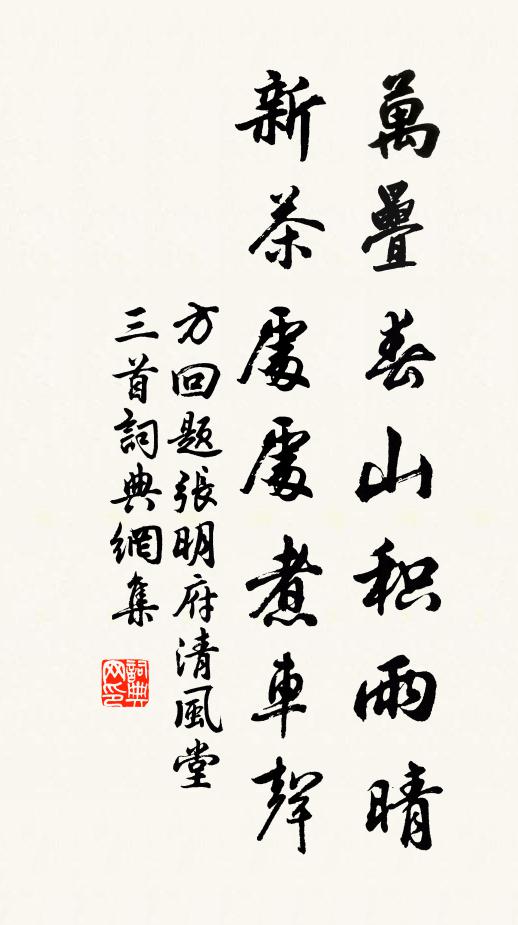 萬疊春山积雨晴
新茶處處煮車聲
方回题張明府清風堂
三首詞典網集
詞典网印